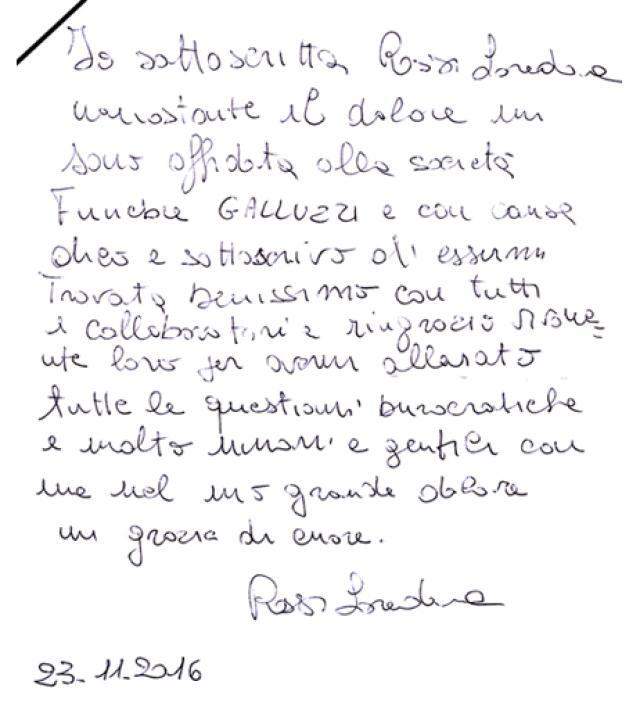 Io sottoscritta Rossi Loredana
nonostante il dolore mi
sono affidata alla società
Funebre GALLUZZI e con
dico e sottoscrivo di essermi
Trovata benissimo con tutti
i collaboratori e ringrazio
loro per avermi
tutte le questioni burocratiche
e molto umani e gentili con
me nel mio grande dolore
un grazia di cuore.
Rossi Loredana
23-11.2016